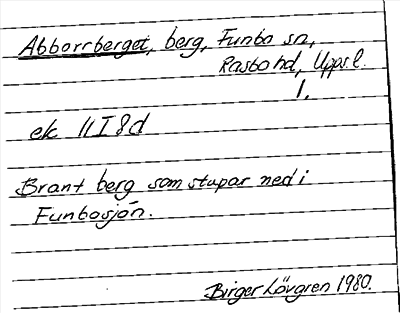 Abborrberget, berg, Funbo sn,
Rasbo hd, Upps. l.
1.
ek 11I8d
Brant berg som stupar ned i
Funbosjön.
Birger Lövgren 1980.